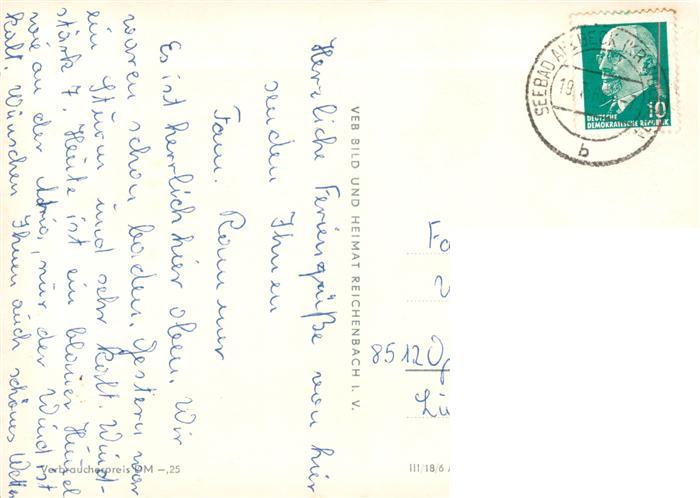 Herzliche Feriengrüße von hier
senden Ihnen
Fam. Rammer
Es ist herrlich hier oben. Wir
waren schon baden. Gestern war
ein Sturm und sehr kalt. Wind-
stärk 7. Heute ist ein blauer Himmel
wie an der Adria, nur der Wind ist
kalt. Wünschen Ihnen auch schönes Wetter
VEB BILD UND HEIMAT REICHENBACH I. V.
SEEBAD AHLBECK
19
b
10
DEUTSCHE
DEMOKRATISCHE REPUBLIK
8512
Verbraucherpreis DM —,25
III/18/6